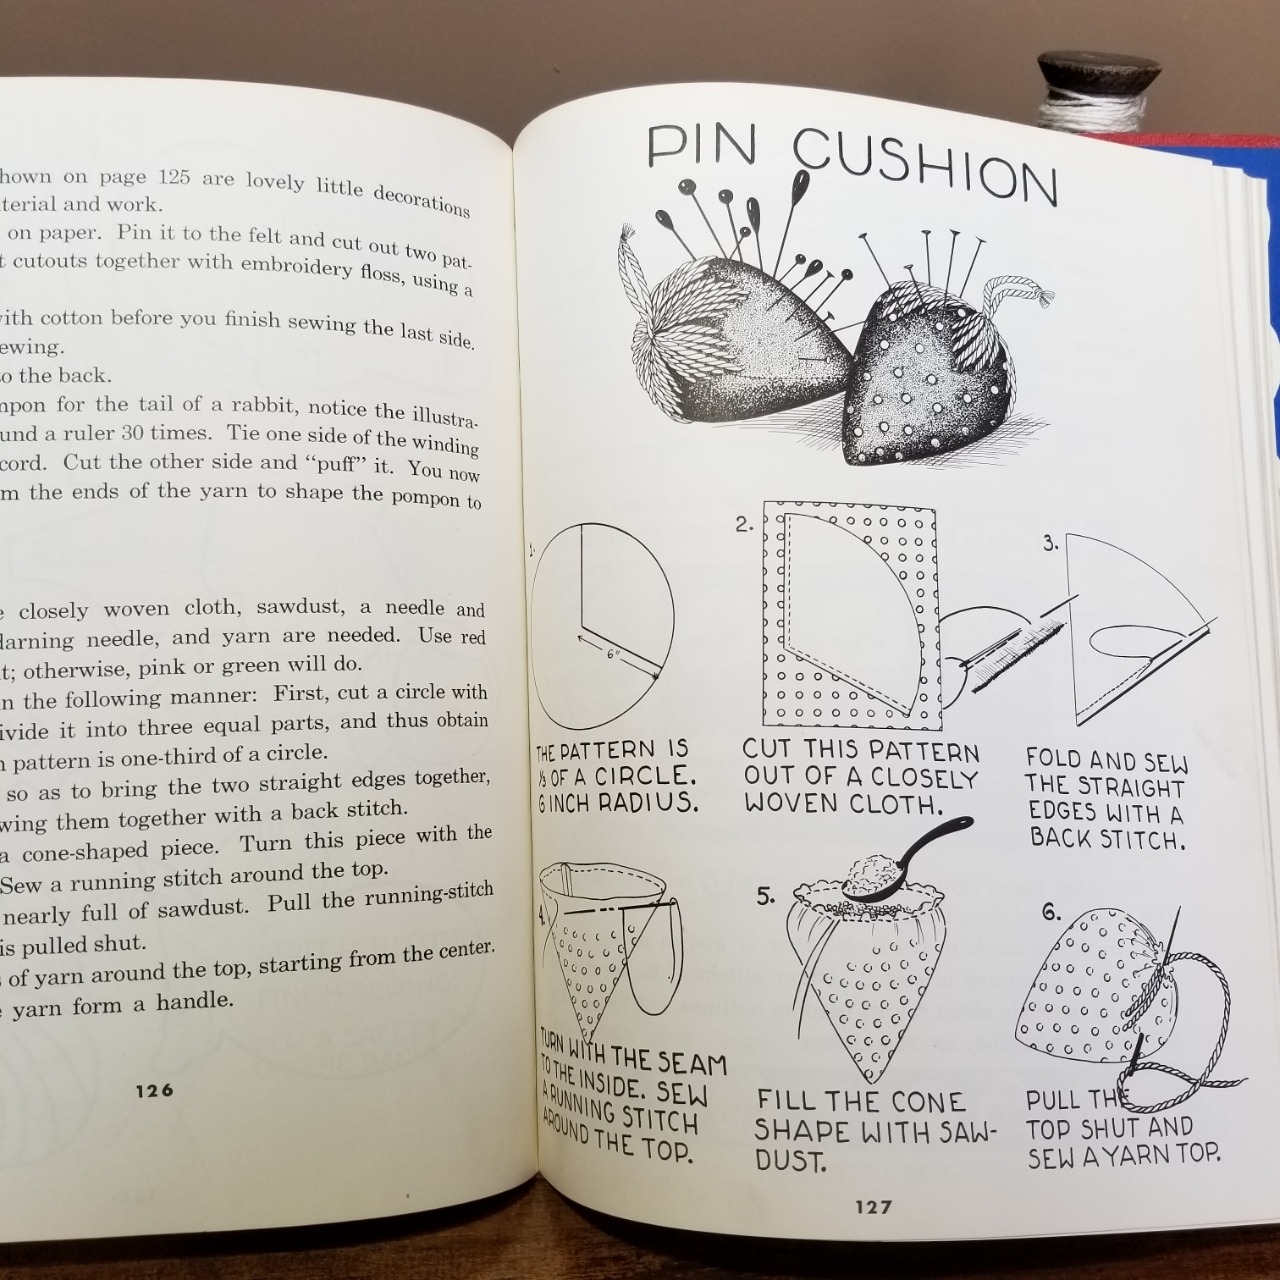 hown on page 125 are lovely little decorations
terial and work.
on paper. Pin it to the felt and cut out two pat-
t cutouts together with embroidery floss, using a
ith cotton before you finish sewing the last side.
ewing.
o the back.
mpon for the tail of a rabbit, notice the illustra-
und a ruler 30 times. Tie one side of the winding
cord. Cut the other side and “puff” it. You now
m the ends of the yarn to shape the pompon to
e closely woven cloth, sawdust, a needle and
darning needle, and yarn are needed. Use red
t; otherwise, pink or green will do.
n the following manner: First, cut a circle with
ivide it into three equal parts, and thus obtain
n pattern is one-third of a circle.
so as to bring the two straight edges together,
wing them together with a back stitch.
a cone-shaped piece. Turn this piece with the
Sew a running stitch around the top.
nearly full of sawdust. Pull the running-stitch
is pulled shut.
s of yarn around the top, starting from the center.
e yarn form a handle.
126
PIN CUSHION
1.
6"
THE PATTERN IS
⅓ OF A CIRCLE.
6 INCH RADIUS.
2.
CUT THIS PATTERN
OUT OF A CLOSELY
WOVEN CLOTH.
3.
FOLD AND SEW
THE STRAIGHT
EDGES WITH A
BACK STITCH.
4.
TURN WITH THE SEAM
TO THE INSIDE. SEW
A RUNNING STITCH
AROUND THE TOP.
5.
FILL THE CONE
SHAPE WITH SAW-
DUST.
6.
PULL THE
TOP SHUT AND
SEW A YARN TOP.
127